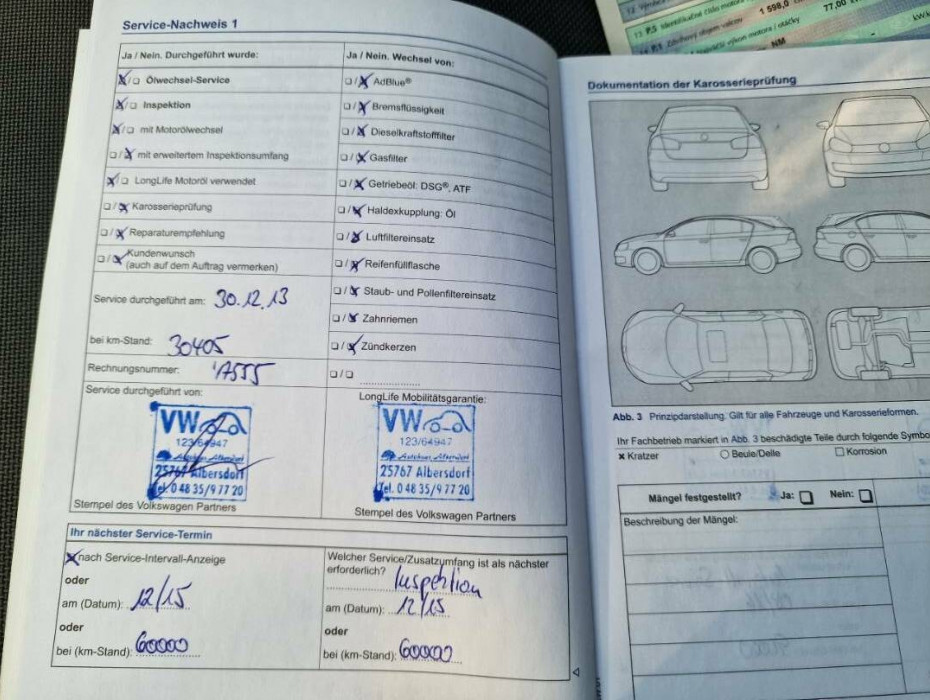 Service-Nachweis 1
Ja / Nein. Durchgeführt wurde:
☒/☐ Ölwechsel-Service
☒/☐ Inspektion
☒/☐ mit Motorölwechsel
☐/☒ mit erweitertem Inspektionsumfang
☒/☐ LongLife Motoröl verwendet
☐/☒ Karosserieprüfung
☐/☒ Reparaturempfehlung
☐/☒ Kundenwunsch
(auch auf dem Auftrag vermerken)
Service durchgeführt am: 30.12.13
bei km-Stand: 30405
Rechnungsnummer:
Service durchgeführt von:
VW
123/64947
25767 Albersdorf
Tel. 0 48 35/9 77 20
Stempel des Volkswagen Partners
Ja / Nein. Wechsel von:
☐/☒ AdBlue®
☐/☒ Bremsflüssigkeit
☐/☒ Dieselkraftstofffilter
☐/☒ Gasfilter
☐/☒ Getriebeöl: DSG®, ATF
☐/☒ Haldexkupplung: Öl
☐/☒ Luftfiltereinsatz
☐/☒ Reifenfüllflasche
☐/☒ Staub- und Pollenfiltereinsatz
☐/☒ Zahnriemen
☐/☒ Zündkerzen
☐/☐ ....................
LongLife Mobilitätsgarantie:
VW
123/64947
25767 Albersdorf
Tel. 0 48 35/9 77 20
Stempel des Volkswagen Partners
Ihr nächster Service-Termin
☒ nach Service-Intervall-Anzeige
oder
am (Datum): 12/15
oder
bei (km-Stand): 60000
Welcher Service/Zusatzumfang ist als nächster
erforderlich?
Inspektion
am (Datum): 12/15
oder
bei (km-Stand): 60000
1 598,0
77,00
NM
Dokumentation der Karosserieprüfung
Abb. 3 Prinzipdarstellung. Gilt für alle Fahrzeuge und Karosserieformen.
Ihr Fachbetrieb markiert in Abb. 3 beschädigte Teile durch folgende
× Kratzer ○ Beule/Delle ☐ Korrosion
Mängel festgestellt? Ja: ☐ Nein: ☐
Beschreibung der Mängel: